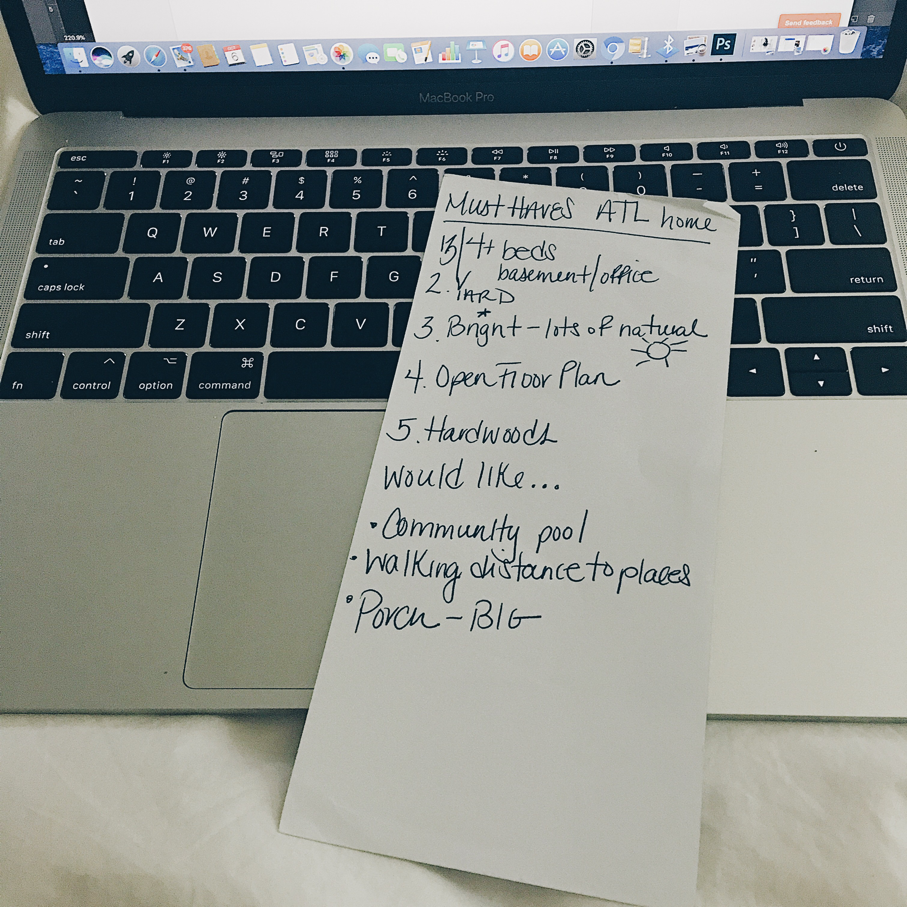 220.9%
Send feedback
Ps
MacBook Pro
esc F1 F2 F3 F4 F5 F6 F7 F8 F9 F10 F11 F12
~ ! @ # $ % ^ * ( ) — +
` 1 2 3 4 5 6 0 - = delete
tab Q W E R T } ] | \
caps lock A S D F G " ' return
shift Z X C V shift
fn control option command
MUST HAVES ATL home
4+ beds
basement/office
2. YARD
3. Bright - lots of natural
4. Open Floor Plan
5. Hardwoods
would like...
• Community pool
• Walking distance to places
• Porch - BIG